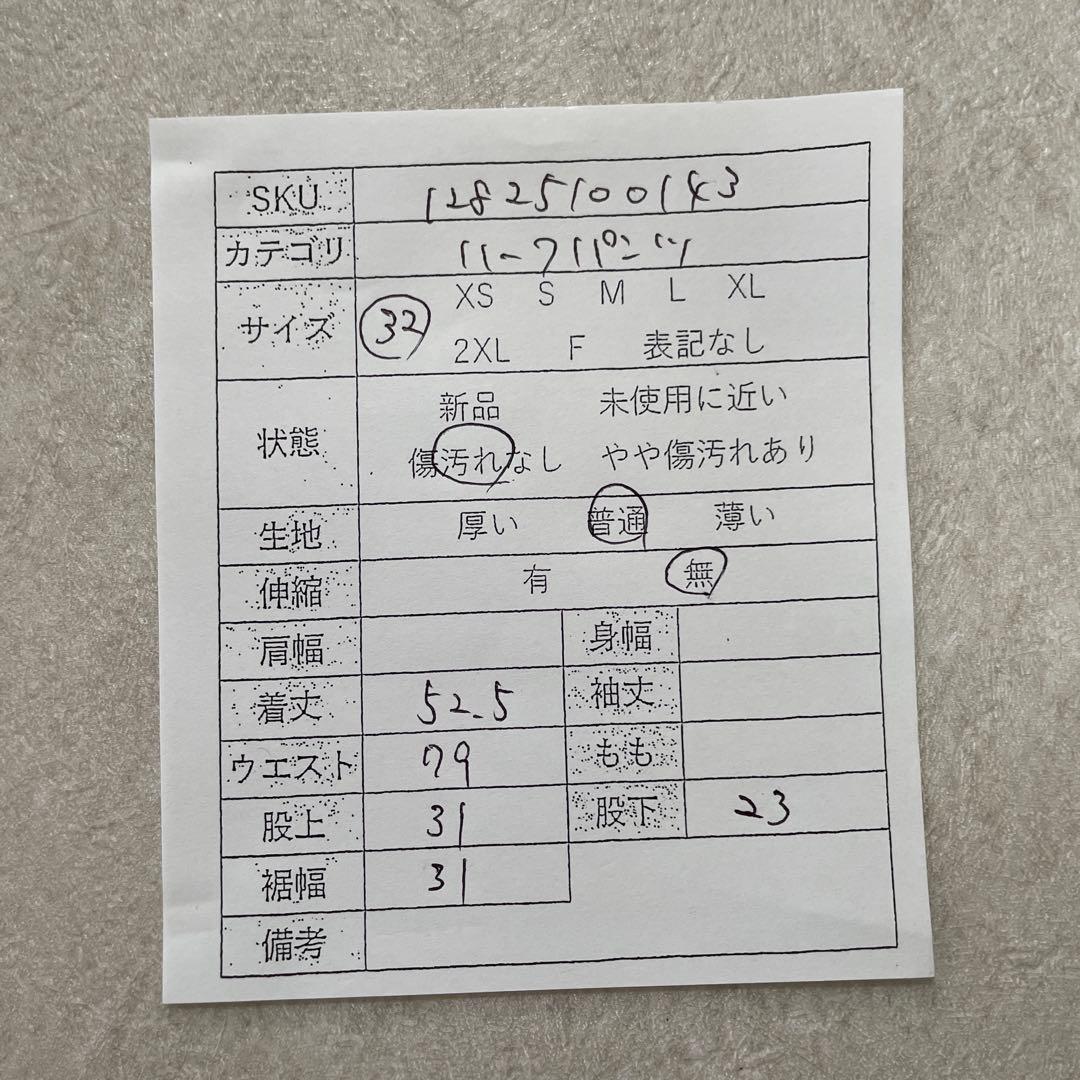 SKU 12825100143
カテゴリ ハーフパンツ
サイズ 32 XS S M L XL
2XL F 表記なし
状態 新品 未使用に近い
傷汚れなし やや傷汚れあり
生地 厚い 普通 薄い
伸縮 有 無
肩幅 身幅
着丈 52.5 袖丈
ウエスト 79 もも
股上 31 股下 23
裾幅 31
備考